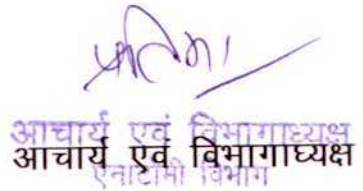 प्रतिमा
आचार्य एवं विभागाध्यक्ष
आचार्य एवं विभागाध्यक्ष
एनाटामी विभाग